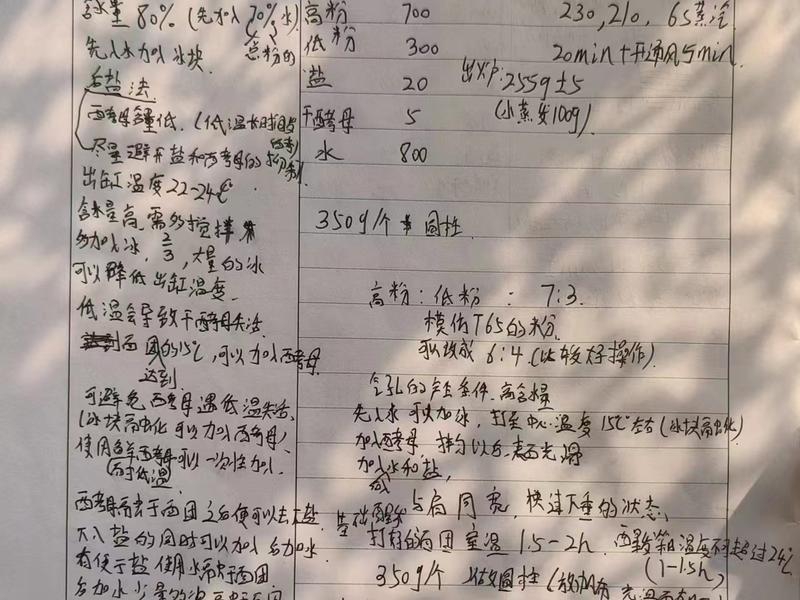 含水量 80% (先加入70%水)
总粉的
先入水加入冰块
后盐法
酵母含量低. (低温长时间
尽量避开盐和酵母的
出缸温度22-24℃
含水量高,需多搅拌
多加入冰, 2/3, 大量的冰
可以降低出缸温度
低温会导致干酵母失活
面团的15℃,可以加入酵母
达到
可避免酵母遇低温失活
(冰块融化可以加入酵母)
使用鲜酵母可以一次性加入
耐低温
酵母融于面团之后便可以去入盐
入盐的同时可以加入后加水
有便于盐使用水融于面团
后加水少量的
高粉 700
低粉 300
盐 20
干酵母 5
水 800
230,210. 6S蒸汽
20min+开通风5min
出炉:255g±5
(小蒸发100g)
350g/个 圆柱
高粉:低粉 : 7:3
模仿T65的粉
可以换成6:4 (比较好操作)
气孔的产生条件,高含水量
先入水可以加冰,打至中心温度15℃左右(冰块融化)
加入酵母 拌匀以后,表面光滑
加入水和盐,
与肩同宽,快速下垂的状态
基础醒发
打好的面团室温1.5-2h. 温度不超过24℃
(1-1.5h)
350g/个 以做圆柱